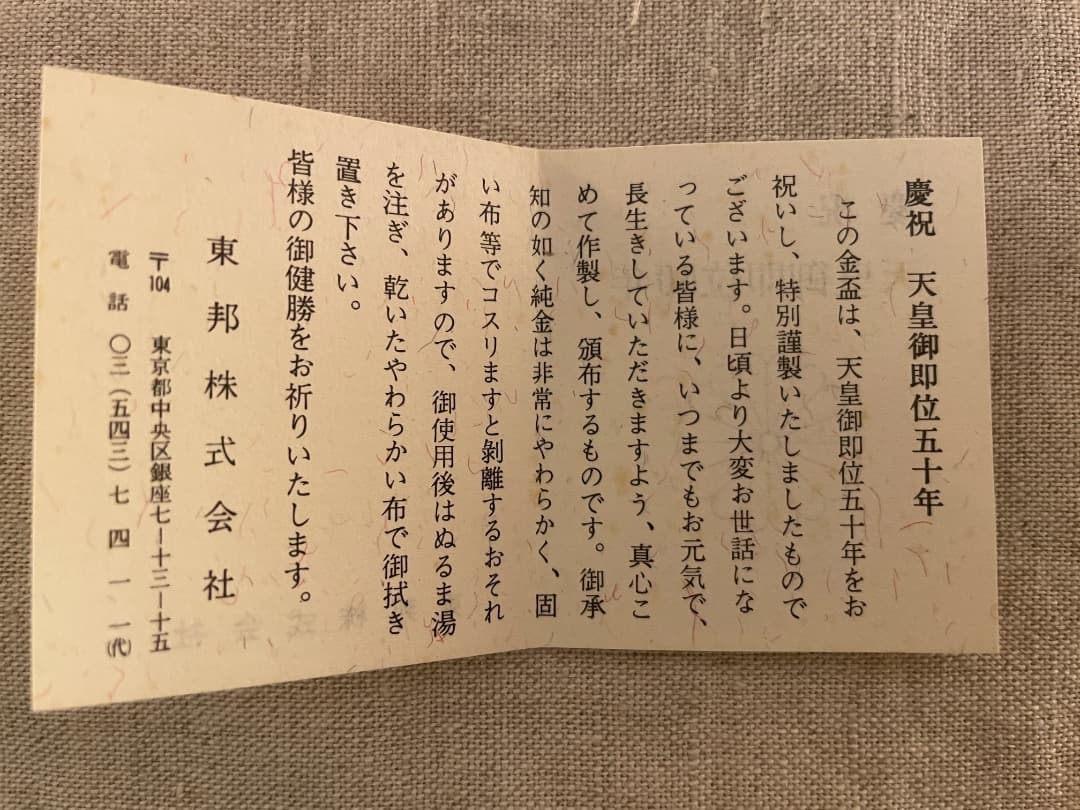 慶祝　天皇御即位五十年
この金盃は、天皇御即位五十年をお
祝いし、特別謹製いたしましたもので
ございます。日頃より大変お世話にな
っている皆様に、いつまでもお元気で、
長生きしていただきますよう、真心こ
めて作製し、頒布するものです。御承
知の如く純金は非常にやわらかく、固
い布等でコスリますと剥離するおそれ
がありますので、御使用後はぬるま湯
を注ぎ、乾いたやわらかい布で御拭き
置き下さい。
皆様の御健勝をお祈りいたします。
東邦株式会社
〒104　東京都中央区銀座七ー十三ー十五
電話　〇三（五四三）七四一一㈹